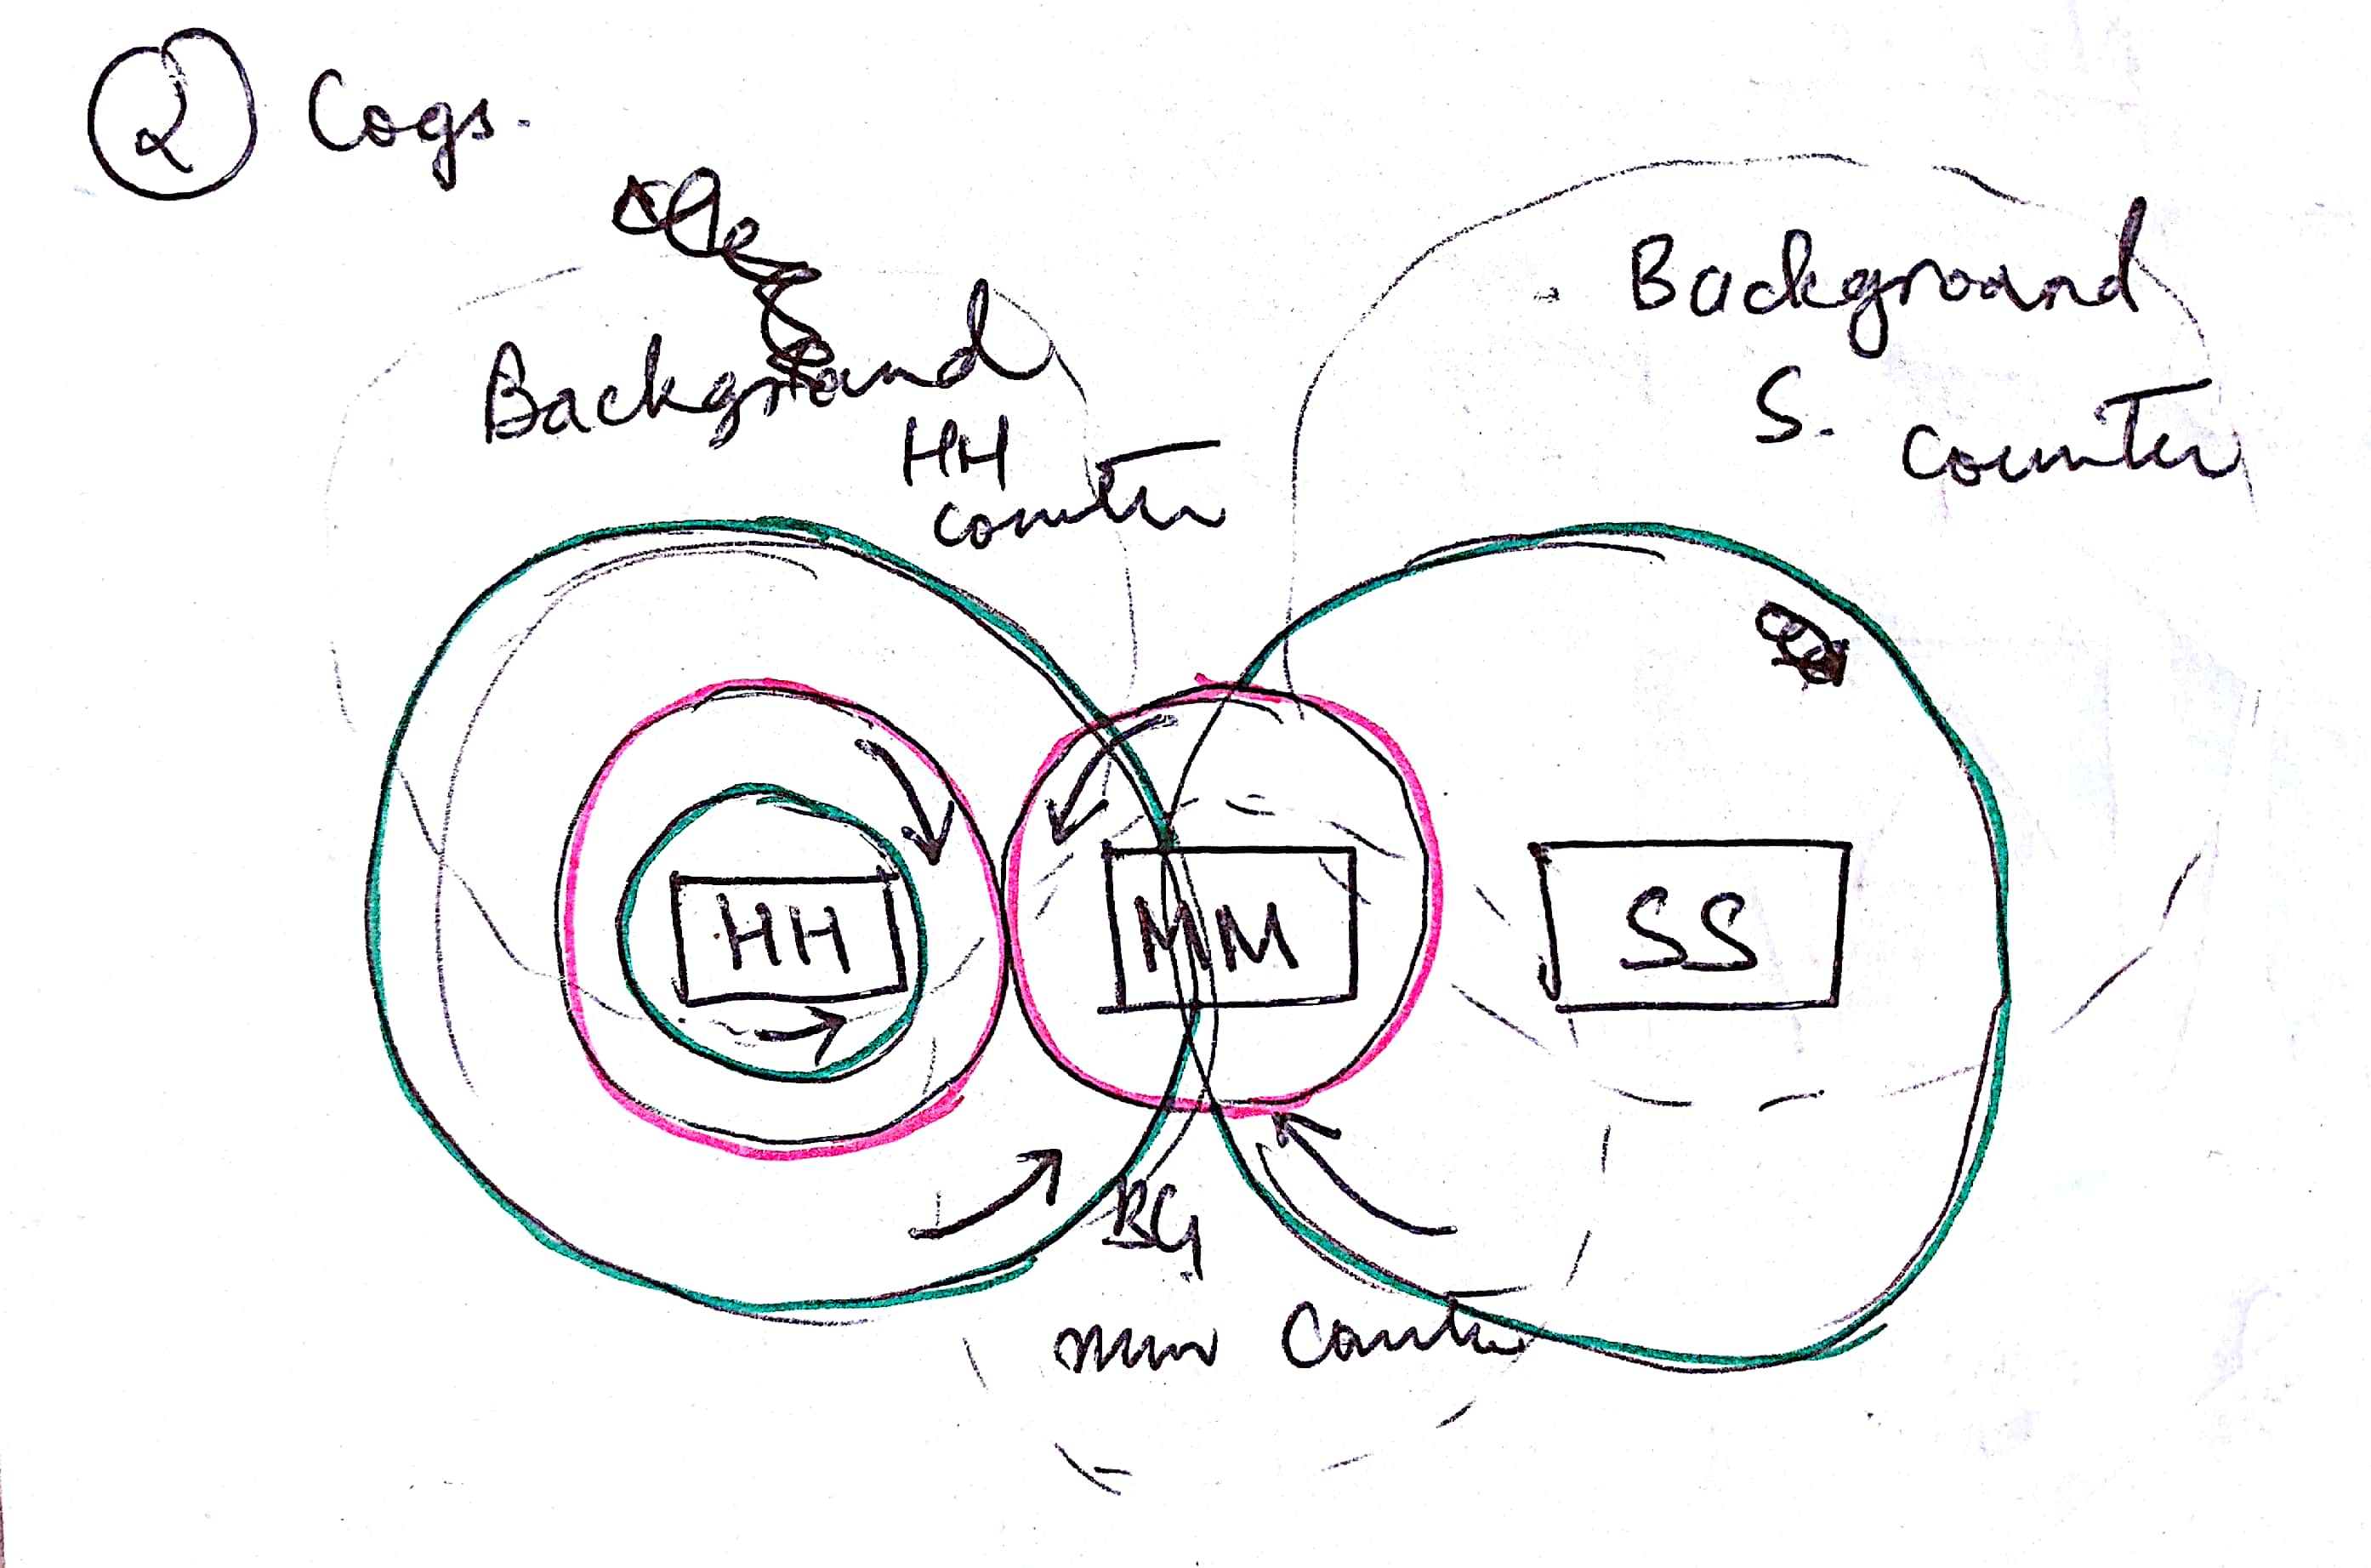 2 Cogs.
Background
HH
counter
Background
S. counter
HH
MM
SS
BG
mm Counter